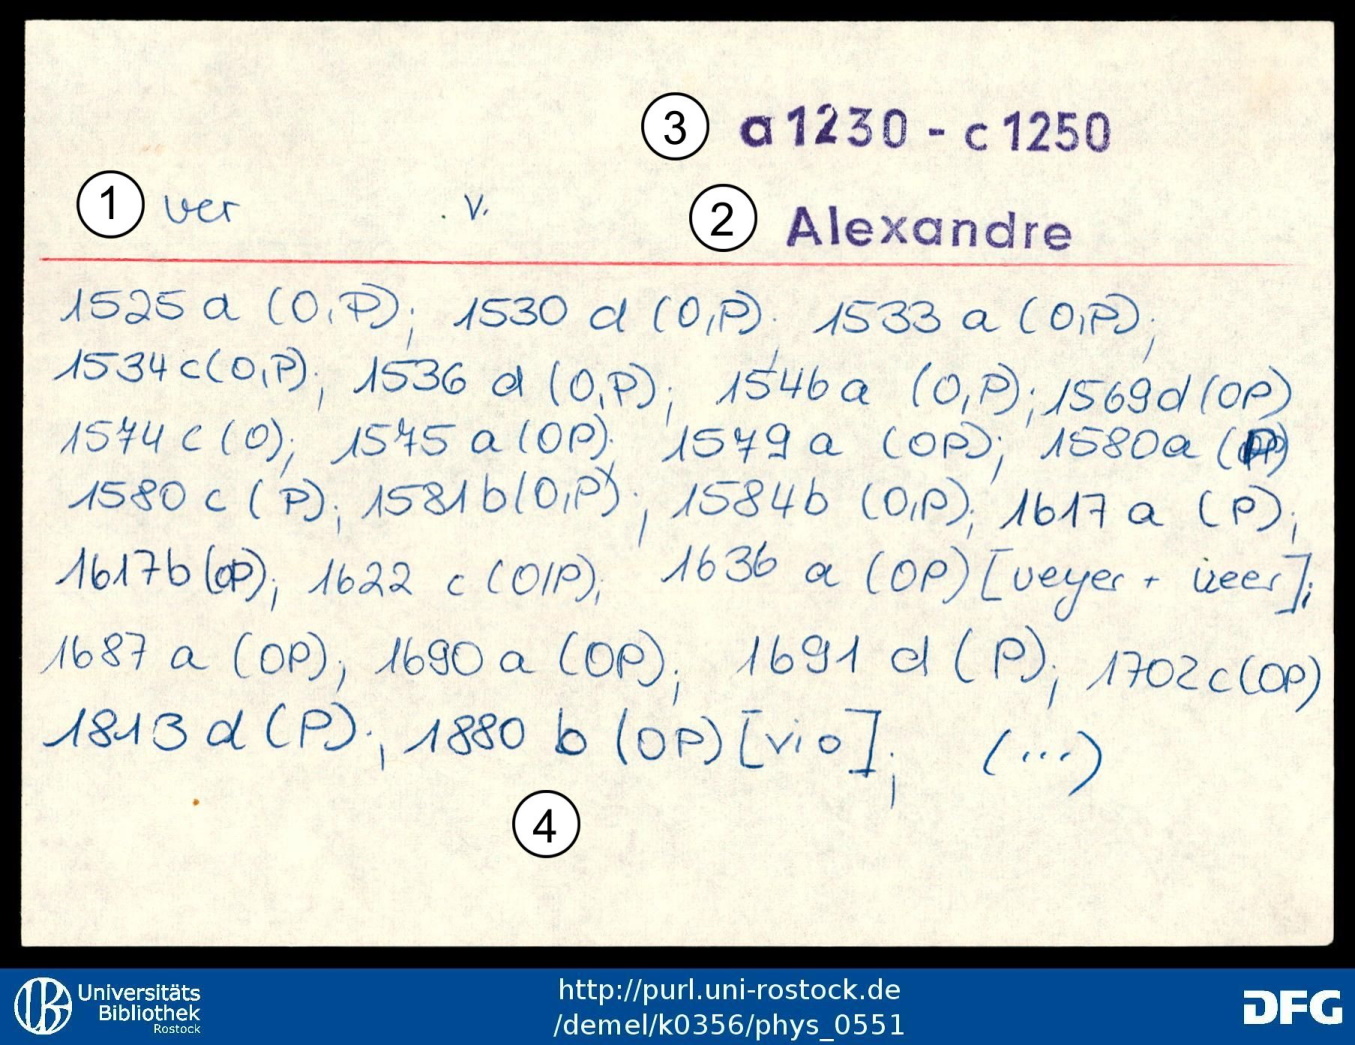 3 a 1230 - c 1250
1 ver . v. 2 Alexandre
1525 a (O,P); 1530 d (O,P); 1533 a (O,P);
1534 c (O,P); 1536 d (O,P); 1546 a (O,P); 1569 d (OP)
1574 c (O); 1575 a (OP); 1579 a (OP); 1580 a
1580 c (P); 1581 b (O,P); 1584 b (O,P); 1617 a (P);
1617 b (OP); 1622 c (O/P); 1636 a (OP) [veyer +
1687 a (OP); 1690 a (OP); 1691 d (P); 1702 c (OP)
1813 d (P); 1880 b (OP) [vio]; (...)
4
Universitäts
Bibliothek
Rostock
http://purl.uni-rostock.de
/demel/k0356/phys_0551
DFG